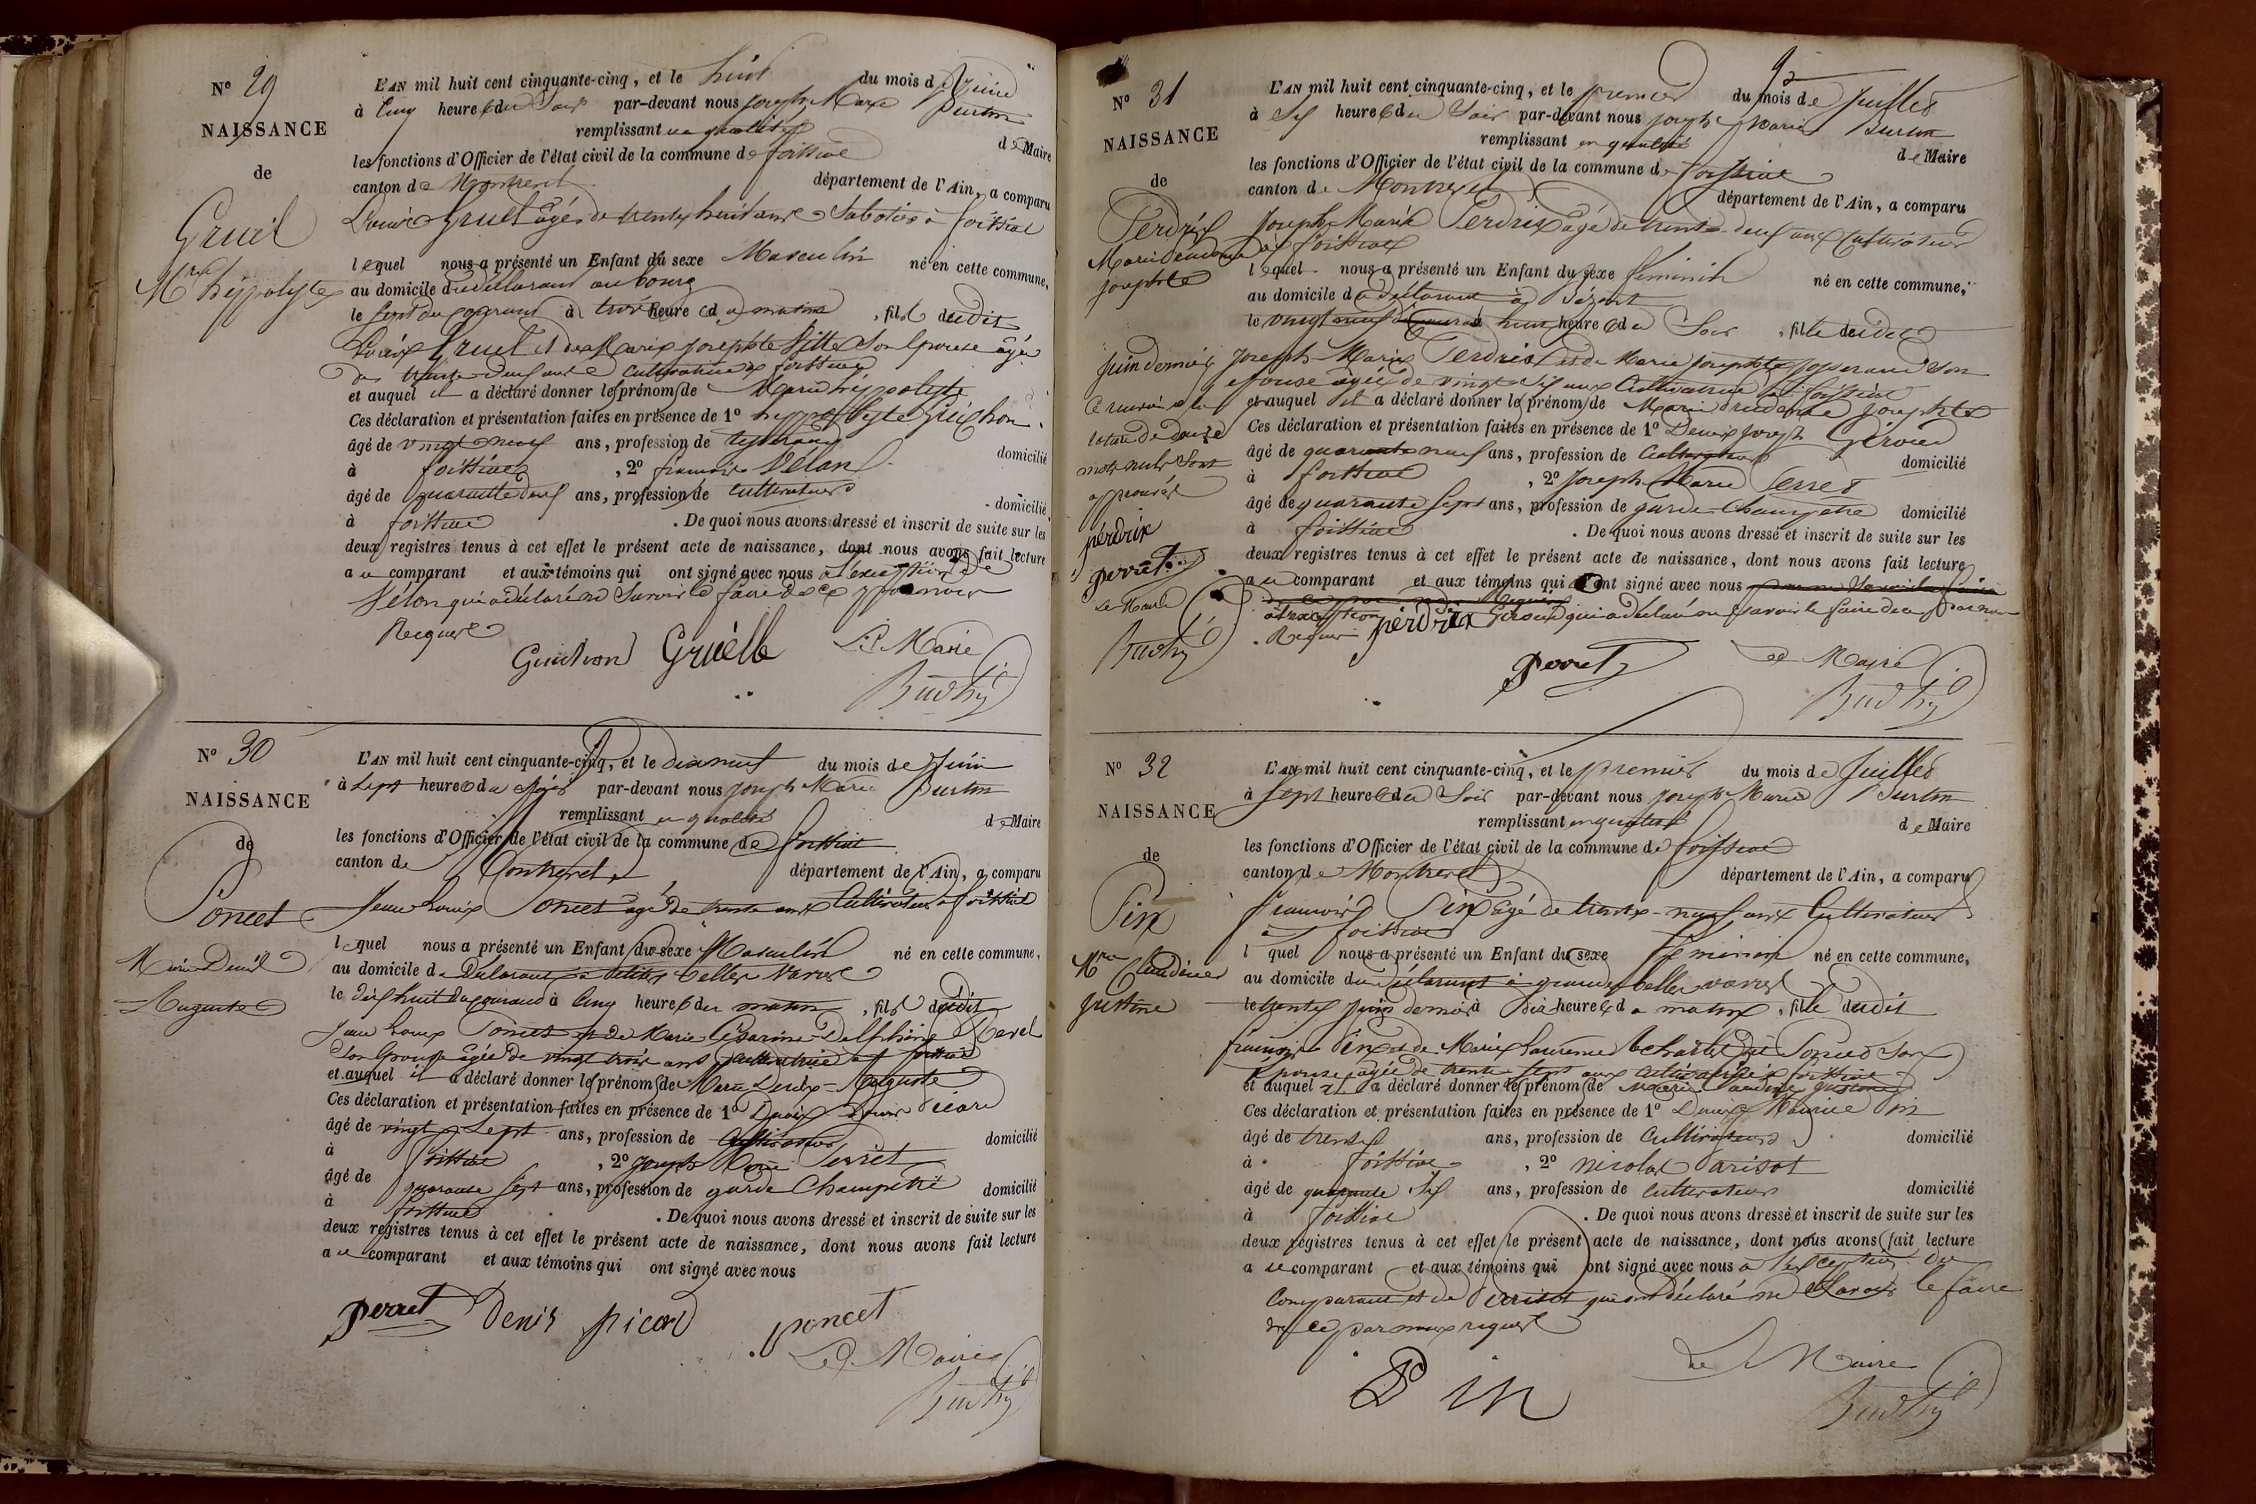 Nº 29
NAISSANCE
de
Gruel
Mie hyppolyte
L'AN mil huit cent cinquante-cinq, et le huit du mois de Juin
à Cinq heure du Soir par-devant nous Joseph Marie Burtin
remplissant en qualité de Maire
les fonctions d'Officier de l'état civil de la commune de foissiat
canton de Montrevel département de l'Ain, a comparu
Gruel âgé de trente huit ans Sabotier à foissiat
lequel nous a présenté un Enfant du sexe Masculin né en cette commune,
au domicile du déclarant au bourg
le sept du courant à trois heure du matin, fils dudit
Gruel et de Marie josephte Son Epouse âgée
de trente deux ans Cultivatrice à foissiat
et auquel il a déclaré donner les prénom de Marie hyppolyte
Ces déclaration et présentation faites en présence de 1º hyppolyte Guichon
âgé de vingt neuf ans, profession de domicilié
à foissiat, 2º françois Vélon
âgé de quarante deux ans, profession de cultivateur domicilié
à foissiat. De quoi nous avons dressé et inscrit de suite sur les
deux registres tenus à cet effet le présent acte de naissance, dont nous avons fait lecture
au comparant et aux témoins qui ont signé avec nous à l'exception de
Vélon qui a déclaré ne Savoir le faire de ce
Requis
Guichon Gruelle Le Maire
Burtin
Nº 30
NAISSANCE
de
Poncet
Marie Denis
Auguste
L'AN mil huit cent cinquante-cinq, et le dix neuf du mois de Juin
à Sept heure du Soir par-devant nous Joseph Marie Burtin
remplissant en qualité de Maire
les fonctions d'Officier de l'état civil de la commune de foissiat
canton de Montrevel département de l'Ain, a comparu
Jean Louis Poncet âgé de trente ans Cultivateur à foissiat
lequel nous a présenté un Enfant du sexe Masculin né en cette commune,
au domicile du Déclarant à
le dix huit du courant à Cinq heure du matin, fils dudit
Jean Louis Poncet et de Marie Césarine Delphine Revel
Son Epouse âgée de vingt trois ans cultivatrice à foissiat
et auquel il a déclaré donner les prénom de Marie Denis Auguste
Ces déclaration et présentation faites en présence de 1º Denis Picard
âgé de vingt Sept ans, profession de Cultivateur domicilié
à foissiat, 2º Joseph Marie Perret
âgé de quarante Sept ans, profession de garde Champêtre domicilié
à foissiat. De quoi nous avons dressé et inscrit de suite sur les
deux registres tenus à cet effet le présent acte de naissance, dont nous avons fait lecture
au comparant et aux témoins qui ont signé avec nous
perret Denis picard poncet
Le Maire
Burtin
Nº 31
NAISSANCE
de
Perdrix
Marie prudence
josephte
L'AN mil huit cent cinquante-cinq, et le premier du mois de Juillet
à Six heure du Soir par-devant nous Joseph Marie Burtin
remplissant en qualité de Maire
les fonctions d'Officier de l'état civil de la commune de foissiat
canton de Montrevel département de l'Ain, a comparu
Joseph Marie Perdrix âgé de trente deux ans Cultivateur
à foissiat
lequel nous a présenté un Enfant du sexe feminin né en cette commune,
au domicile du déclarant à
le vingt neuf heure du Soir, fille dudit
juin dernier Joseph Marie Perdrix et de Marie josephte son
epouse âgée de vingt Six ans Cultivatrice à foissiat
et auquel il a déclaré donner les prénom de Marie prudence josephte
Ces déclaration et présentation faites en présence de 1º Denis joseph
âgé de quarante neuf ans, profession de Cultivateur domicilié
à foissiat, 2º Joseph Marie Perret
âgé de quarante Sept ans, profession de garde Champetre domicilié
à foissiat. De quoi nous avons dressé et inscrit de suite sur les
deux registres tenus à cet effet le présent acte de naissance, dont nous avons fait lecture
au comparant et aux témoins qui ont signé avec nous
à l'exception qui a déclaré ne savoir le faire de ce
Requis perdrix
perret Le Maire
Burtin
Ce renvoi et la
rature de douze
mots nuls Sont
approuvés
perdrix
perret
Le Maire
Burtin
Nº 32
NAISSANCE
de
Pin
Mie Claudine
justine
L'AN mil huit cent cinquante-cinq, et le premier du mois de Juillet
à Sept heure du Soir par-devant nous Joseph Marie Burtin
remplissant en qualité de Maire
les fonctions d'Officier de l'état civil de la commune de foissiat
canton de Montrevel département de l'Ain, a comparu
françois Pin âgé de trente-neuf ans Cultivateur
à foissiat
l quel nous a présenté un Enfant du sexe feminin né en cette commune,
au domicile du déclarant à
le trente juin dernier à dix heure du matin, fille dudit
françois Pin et de Marie Laurence dit Poncet Son
Epouse âgée de trente Sept ans cultivatrice à foissiat
et auquel il a déclaré donner les prénom de Marie Claudine justine
Ces déclaration et présentation faites en présence de 1º Maurice Pin
âgé de trente ans, profession de Cultivateur domicilié
à foissiat, 2º nicolas Parisot
âgé de quarante Six ans, profession de cultivateur domicilié
à foissiat. De quoi nous avons dressé et inscrit de suite sur les
deux registres tenus à cet effet le présent acte de naissance, dont nous avons fait lecture
au comparant et aux témoins qui ont signé avec nous à l'exception du
Comparant et de Parisot qui ont déclaré ne Savoir le faire
de ce par nous requis
Pin Le Maire
Burtin